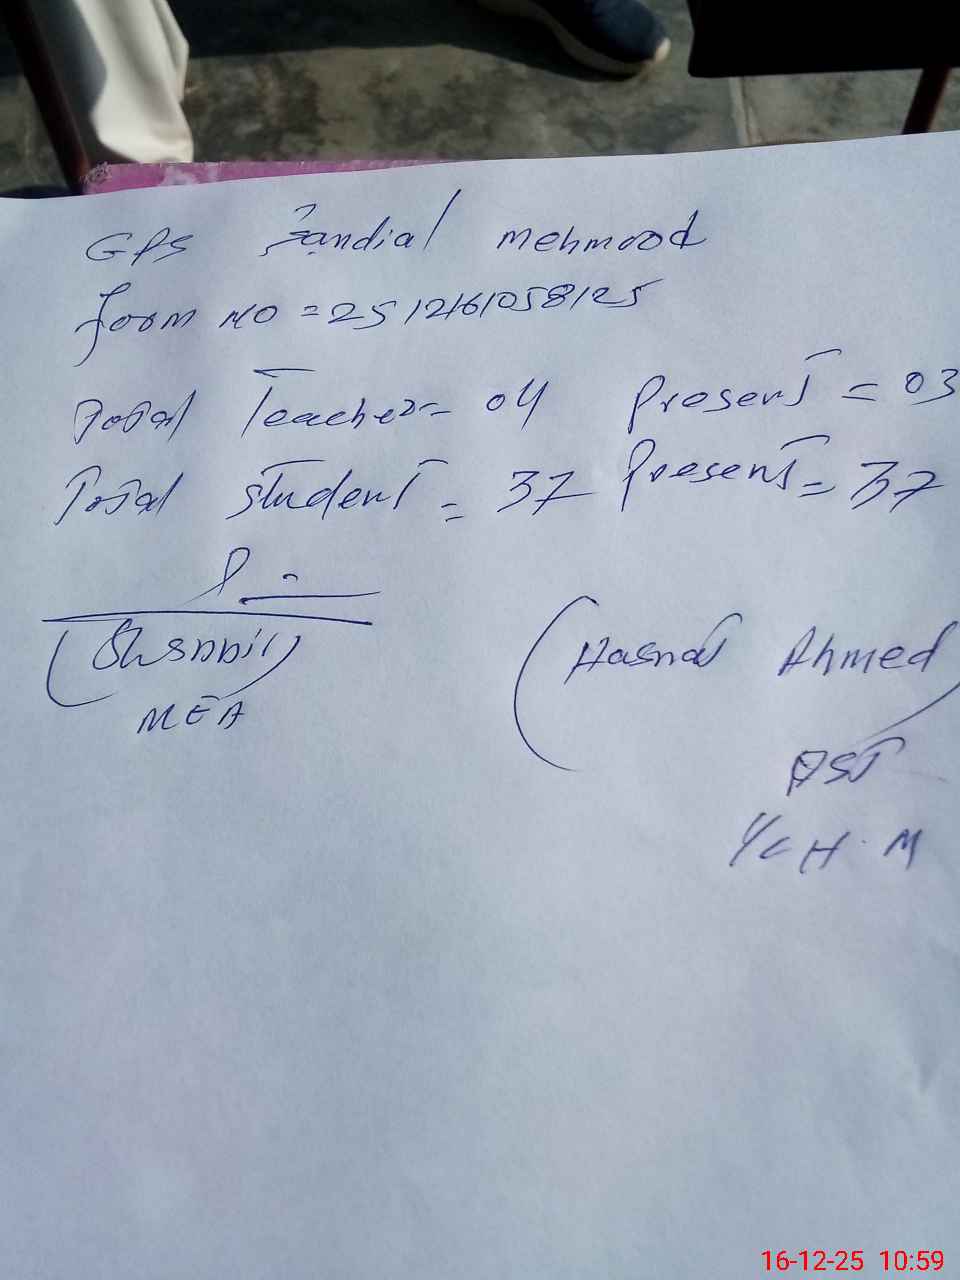 GPS Jandial mehmood
form NO = 2512161058125
Total Teacher = 04 Present = 03
Total student = 37 Present = 37
MEA
(Hasnat Ahmed)
PST
I/C H.M
16-12-25 10:59